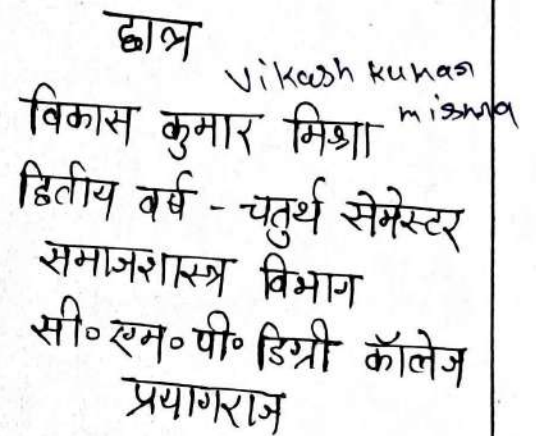 छात्र
Vikash kumar
mishra
विकास कुमार मिश्रा
द्वितीय वर्ष - चतुर्थ सेमेस्टर
समाजशास्त्र विभाग
सी० एम० पी० डिग्री कॉलेज
प्रयागराज